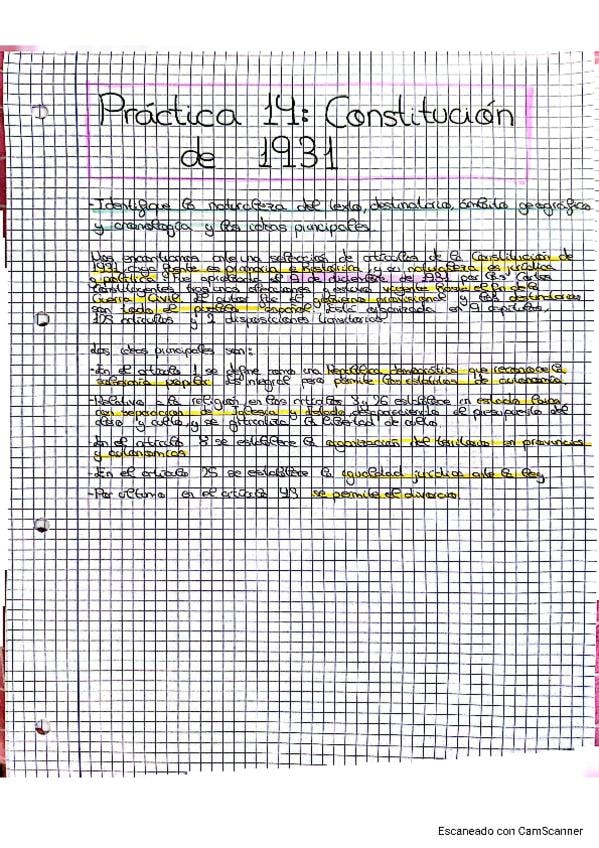 Práctica 14: Constitución
de 1931
-Identifique la naturaleza del texto, destinatario, ámbito geográfico
y cronología y las ideas principales.
Nos encontramos ante una selección de artículos de la Constitución de
1931, cuya fuente es primaria e histórica, y su naturaleza es jurídica
y política. Fue aprobada el 9 de diciembre de 1931 por las Cortes
Constituyentes tras unas elecciones y estuvo vigente hasta el fin de la
Guerra Civil. El autor fue el gobierno provisional y los destinatarios
son todo el pueblo español. Está organizada en 9 capítulos,
125 artículos y 2 disposiciones transitorias.
Las ideas principales son:
-En el artículo 1 se define como una República democrática que reconoce la
soberanía popular. Es integral pero permite los estatutos de autonomía.
-Relativo a la religión en los artículos 3 y 26 establece un estado laico
con separación de Iglesia y Estado, desapareciendo el presupuesto del
clero y culto, y se garantiza la libertad de culto.
-En el artículo 8 se establece la organización del territorio en provincias
y autonomías
-En el artículo 25 se establece la igualdad jurídica ante la ley
-Por último en el artículo 43 se permite el divorcio.
Escaneado con CamScanner